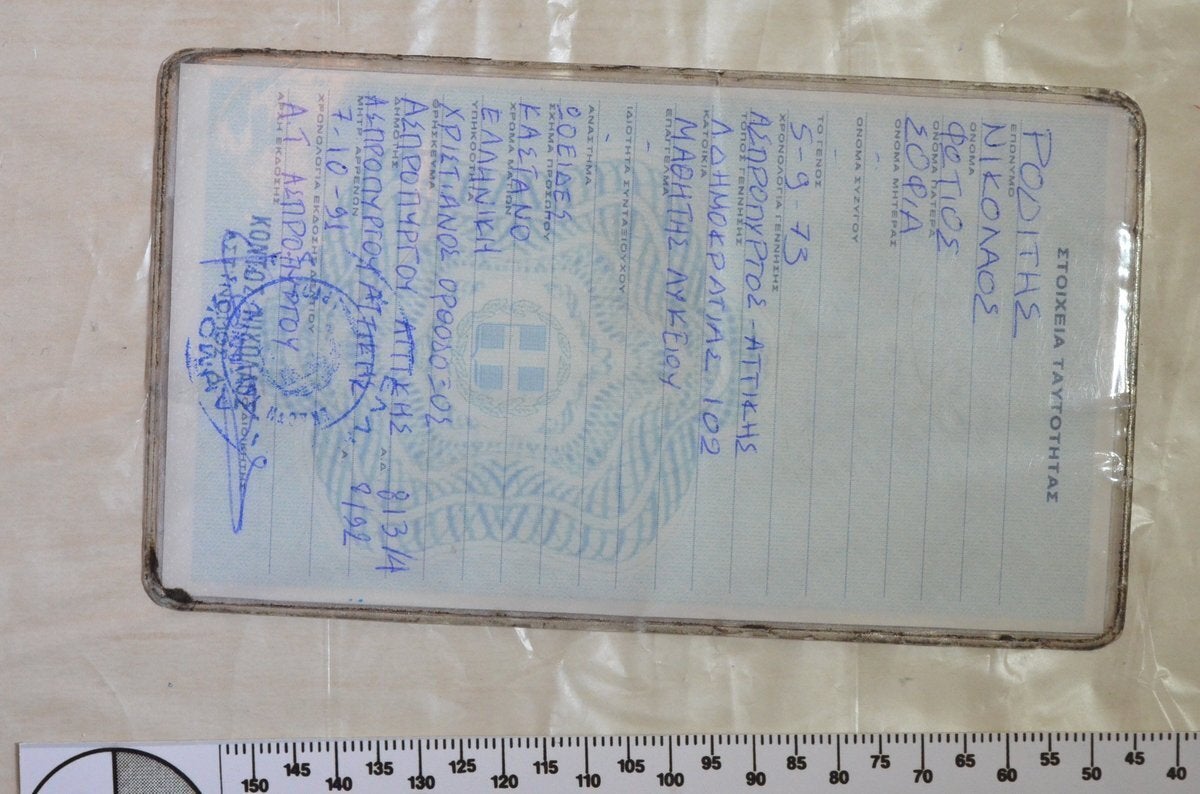 ΣΤΟΙΧΕΙΑ ΤΑΥΤΟΤΗΤΑΣ
ΡΟΔΙΤΗΣ
ΕΠΩΝΥΜΟ
ΝΙΚΟΛΑΟΣ
ΟΝΟΜΑ
ΦΩΤΙΟΣ
ΟΝΟΜΑ ΠΑΤΕΡΑ
ΣΟΦΙΑ
ΟΝΟΜΑ ΜΗΤΕΡΑΣ
-
ΟΝΟΜΑ ΣΥΖΥΓΟΥ
-
ΤΟ ΓΕΝΟΣ
5-9-73
ΧΡΟΝΟΛΟΓΙΑ ΓΕΝΝΗΣΗΣ
ΑΣΠΡΟΠΥΡΓΟΣ-ΑΤΤΙΚΗΣ
ΤΟΠΟΣ ΓΕΝΝΗΣΗΣ
Λ.ΔΗΜΟΚΡΑΤΙΑΣ 102
ΚΑΤΟΙΚΙΑ
ΜΑΘΗΤΗΣ ΛΥΚΕΙΟΥ
ΕΠΑΓΓΕΛΜΑ
-
ΙΔΙΟΤΗΤΑ ΣΥΝΤΑΞΙΟΥΧΟΥ
-
ΑΝΑΣΤΗΜΑ
ΟΟΕΙΔΕΣ
ΣΧΗΜΑ ΠΡΟΣΩΠΟΥ
ΚΑΣΤΑΝΟ
ΧΡΩΜΑ ΜΑΤΙΩΝ
ΕΛΛΗΝΙΚΗ
ΥΠΗΚΟΟΤΗΤΑ
ΧΡΙΣΤΙΑΝΟΣ ΟΡΘΟΔΟΞΟΣ
ΘΡΗΣΚΕΥΜΑ
ΑΣΠΡΟΠΥΡΓΟΥ ΑΤΤΙΚΗΣ 813/4
ΔΗΜΟΤΗΣ Α.Δ.
ΑΣΠΡΟΠΥΡΓΟΥ ΑΤΤΙΚΗΣ
ΜΗΤΡ. ΑΡΡΕΝΩΝ Α.Α.
7-10-91
ΧΡΟΝΟΛΟΓΙΑ ΕΚΔΟΣΗΣ ΔΕΛΤΙΟΥ
Α.Τ. ΑΣΠΡΟΠΥΡΓΟΥ
ΑΡΧΗ ΕΚΔΟΣΗΣ
ΝΙΚΟΛΑΟΣ
150 145 140 135 130 125 120 115 110 105 100 95 90 85 80 75 70 65 60 55 50 45 40